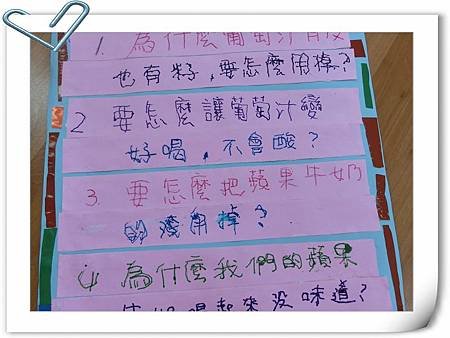 1. 為什麼葡萄汁有皮
也有籽,要怎麼用掉?
2 要怎麼讓葡萄汁變
好喝,不會酸?
3. 要怎麼把蘋果牛奶
的渣用掉?
4 為什麼我們的蘋果
牛奶喝起來沒味道?